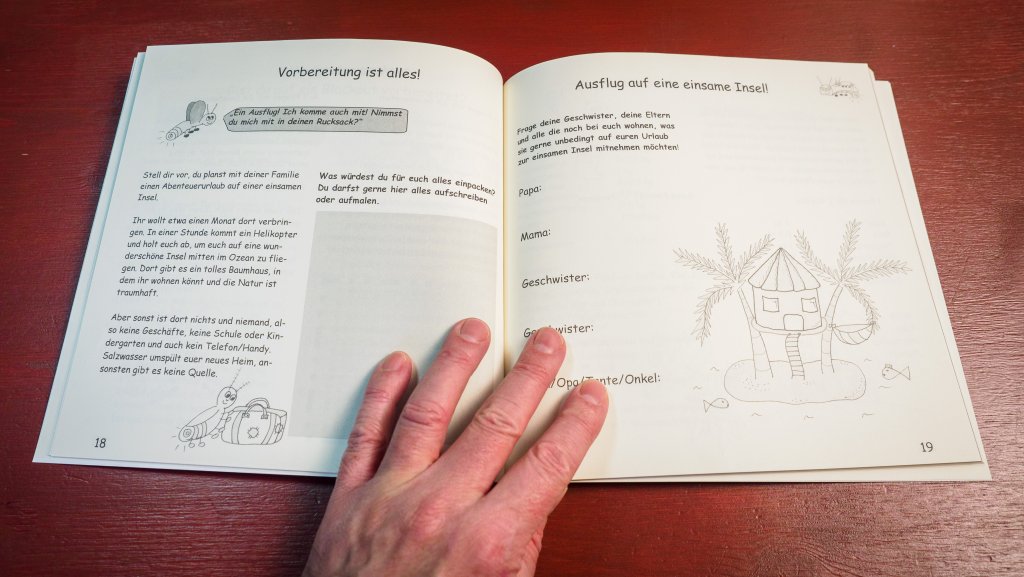 Vorbereitung ist alles!
„Ein Ausflug! Ich komme auch mit! Nimmst
du mich mit in deinen Rucksack?“
Stell dir vor, du planst mit deiner Familie
einen Abenteuerurlaub auf einer einsamen
Insel.
Ihr wollt etwa einen Monat dort verbrin-
gen. In einer Stunde kommt ein Helikopter
und holt euch ab, um euch auf eine wun-
derschöne Insel mitten im Ozean zu flie-
gen. Dort gibt es ein tolles Baumhaus, in
dem ihr wohnen könnt und die Natur ist
traumhaft.
Aber sonst ist dort nichts und niemand, al-
so keine Geschäfte, keine Schule oder Kin-
dergarten und auch kein Telefon/Handy.
Salzwasser umspült euer neues Heim, an-
sonsten gibt es keine Quelle.
Was würdest du für euch alles einpacken?
Du darfst gerne hier alles aufschreiben
oder aufmalen.
18
Ausflug auf eine einsame Insel!
Frage deine Geschwister, deine Eltern
und alle die noch bei euch wohnen, was
sie gerne unbedingt auf euren Urlaub
zur einsamen Insel mitnehmen möchten!
Papa:
Mama:
Geschwister:
Geschwister:
/Opa/Tante/Onkel:
19